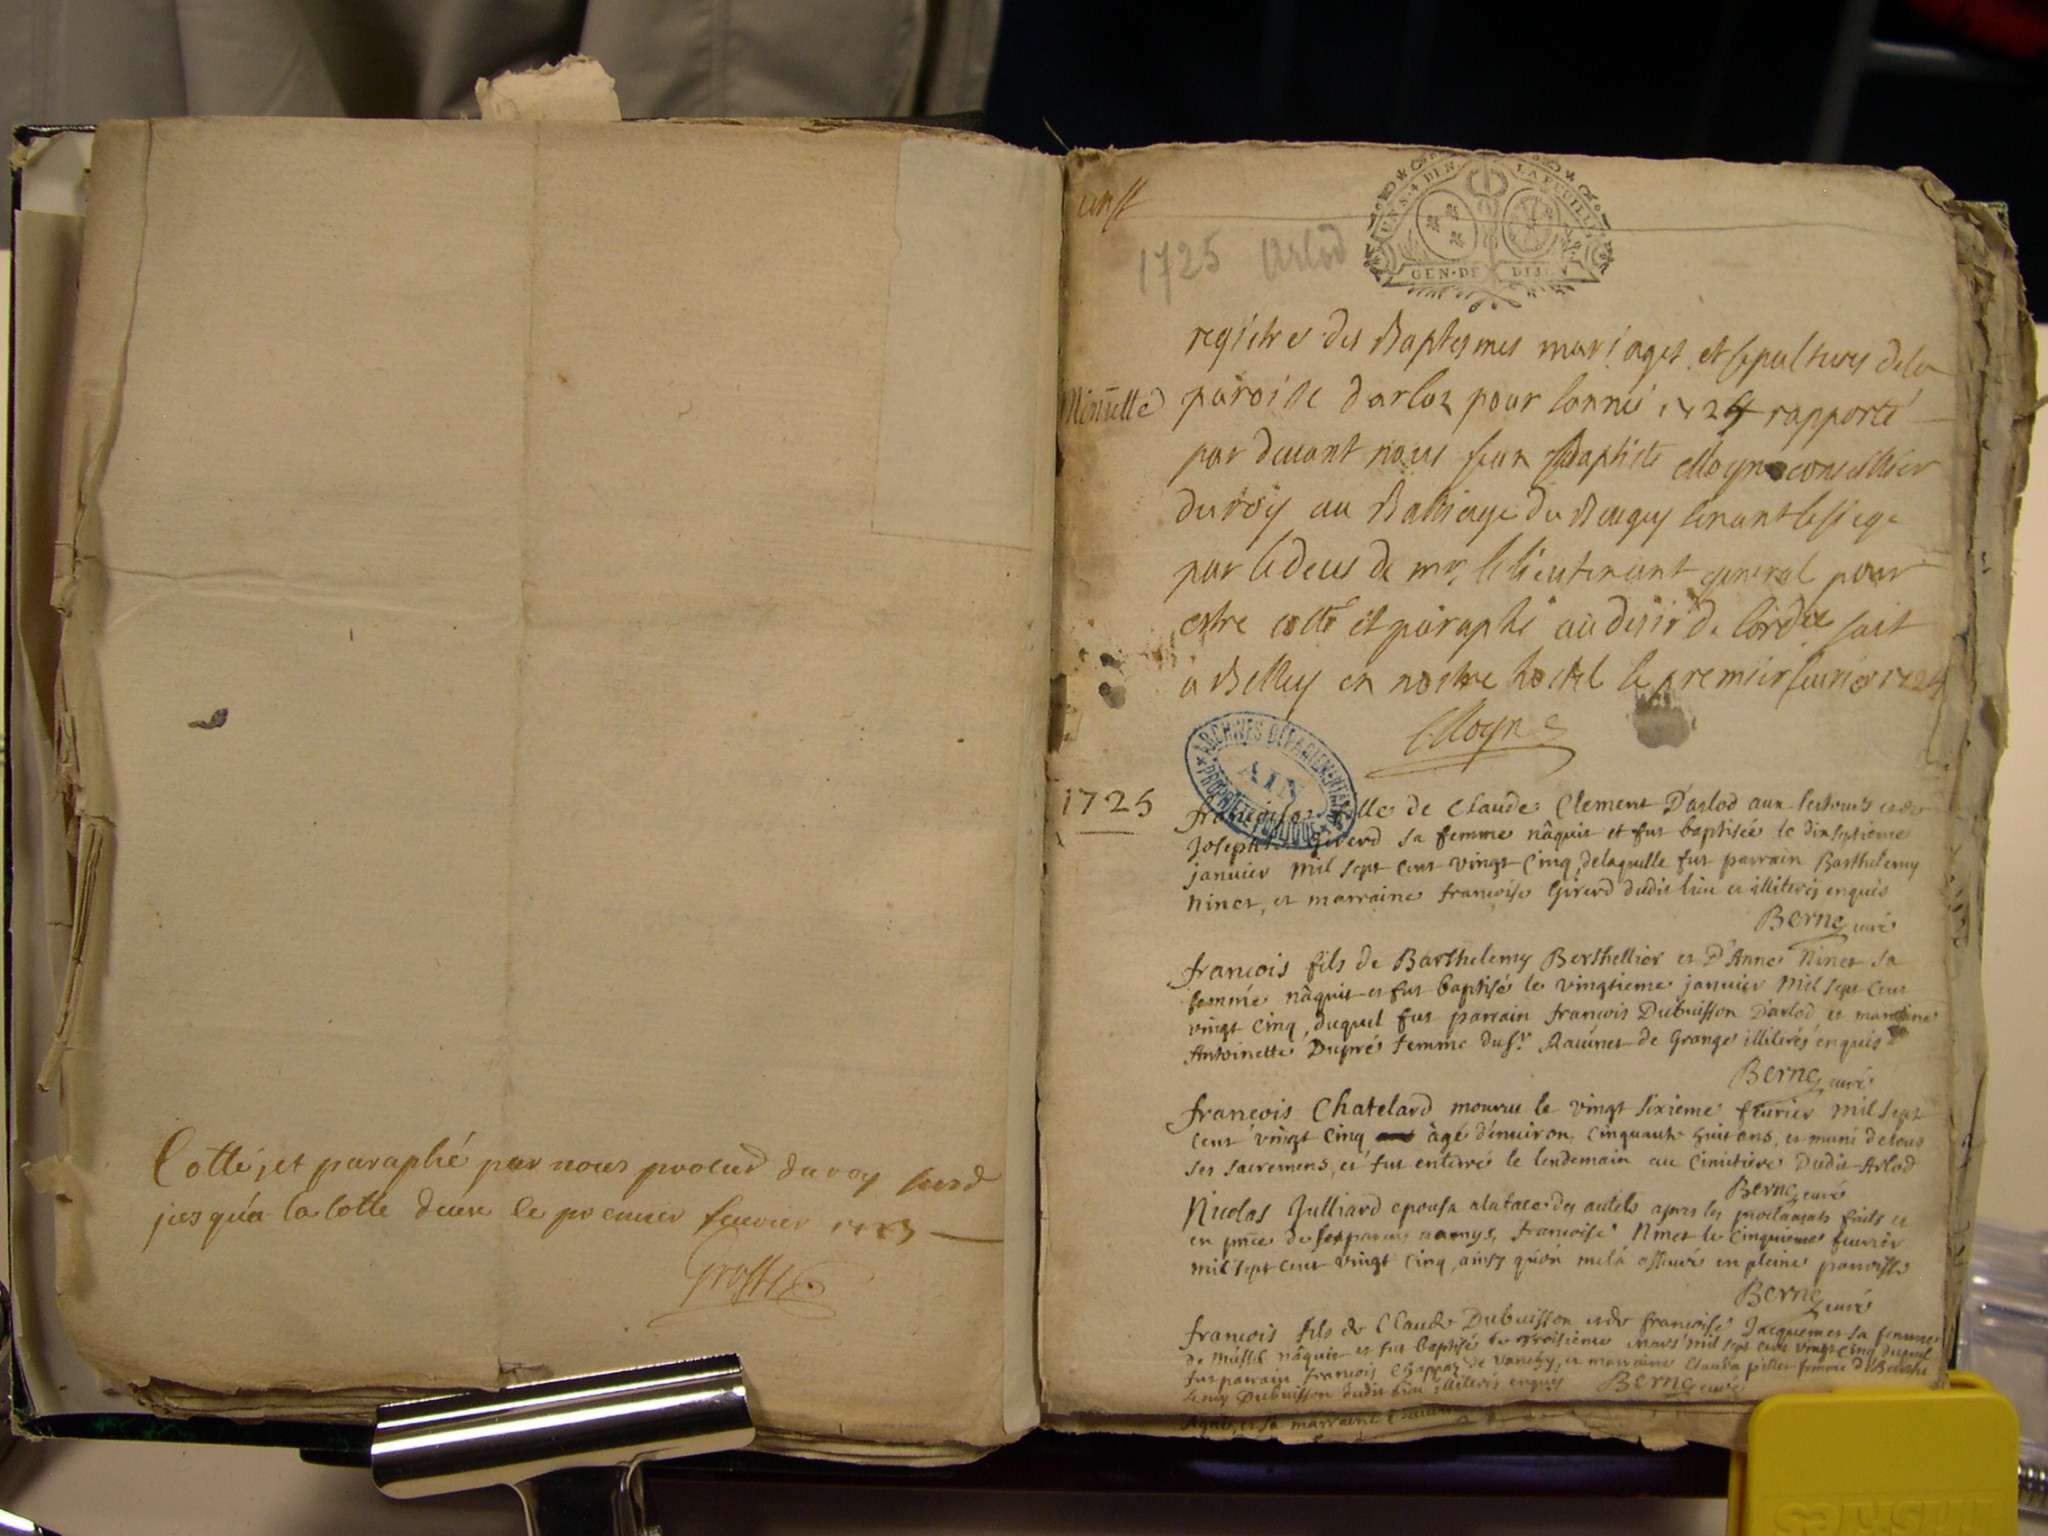 Cotté, et paraphé par nous procur du roy
jusqu'à la cotte deux le premier feuvrier
1725 Arlod
UN S. 4 DEN LA FEUILLE
GEN. DE DIJON
registre des Baptesmes mariages et sepultures dela
Minutte
paroisse darloz pour lannée 1724 rapporté
par deuant nous Jean Baptiste Moyne conseillier
du roy au Balliage du Beugey tenant le siege
par le deces de mr. le lieutenant general pour
estre cotté et paraphé au desir de lordce fait
a Belley en nostre hostel le premier feurier 1724
Moyne
ARCHIVES DÉPARTEMENTALES
AIN
PROPRIÉTÉ PUBLIQUE
1725
françoise fille de Claude Clement D'arlod aux et de
Josephte Girerd sa femme nâquit et fut baptisée le dixseptieme
janvier mil sept cent vingt cinq, delaquelle fut parrain Barthelemy
Ninet, et marraine françoise Girerd dudit lieu et illiterés enquis
Berne curé
françois fils de Barthelemy Berthellier et D'Anne Ninet sa
femme nâquit et fut baptisé le vingtieme janvier mil sept cent
vingt cinq, duquel fut parrain françois Dubuisson D'arlod et marraine
Antoinette Dupré femme du sr. Ravinet de Grange illiterés enquis
Berne curé
françois Chatelard mourru le vingt sixieme feurier mil sept
cent vingt cinq âgé d'enuiron cinquante huit ans, et muni de tous
ses sacremens, et fut enterré le lendemain au cimitiere dudit Arlod
Berne curé
Nicolas Julliard epousa a la face des autels apres les proclamats faits et
en pnce de ses parens et amys, françoise Ninet le cinquieme feurier
mil sept cent vingt cinq, ainsy qu'on mel'a assuré en pleine parroisse
Berne curé
françois fils de Claude Dubuisson et de françoise Jacquemet sa femme
de Mussel nâquit et fut baptisé le troisieme mars mil sept cent vingt cinq duquel
fut parrain françois Chappaz de Vanchy, et marraine Clauda femme de Barthe
lemy Dubuisson dudit lieu illiterés enquis Berne curé
et sa marraine